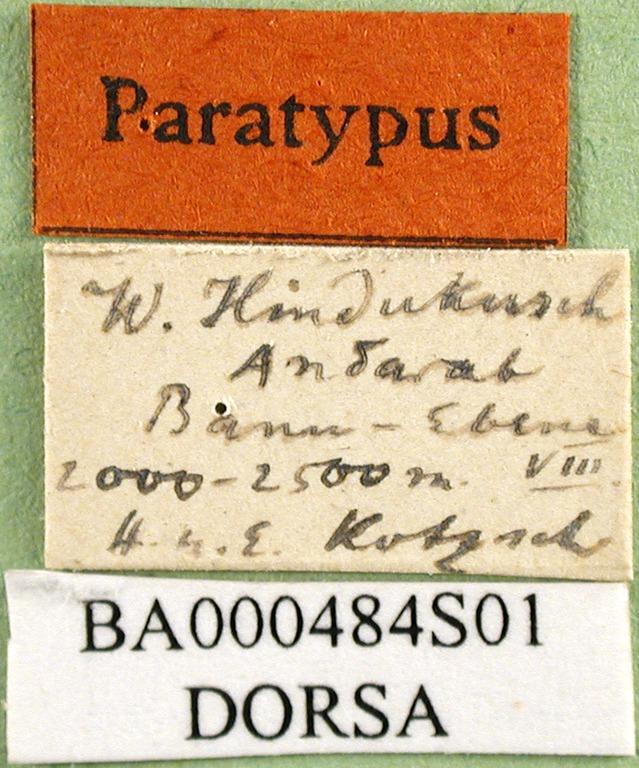 Paratypus
W. Hindukusch
Andarab
Banu - Ebene
2000-2500 m. VIII.
H. u. E. Kotzsch
BA000484S01
DORSA